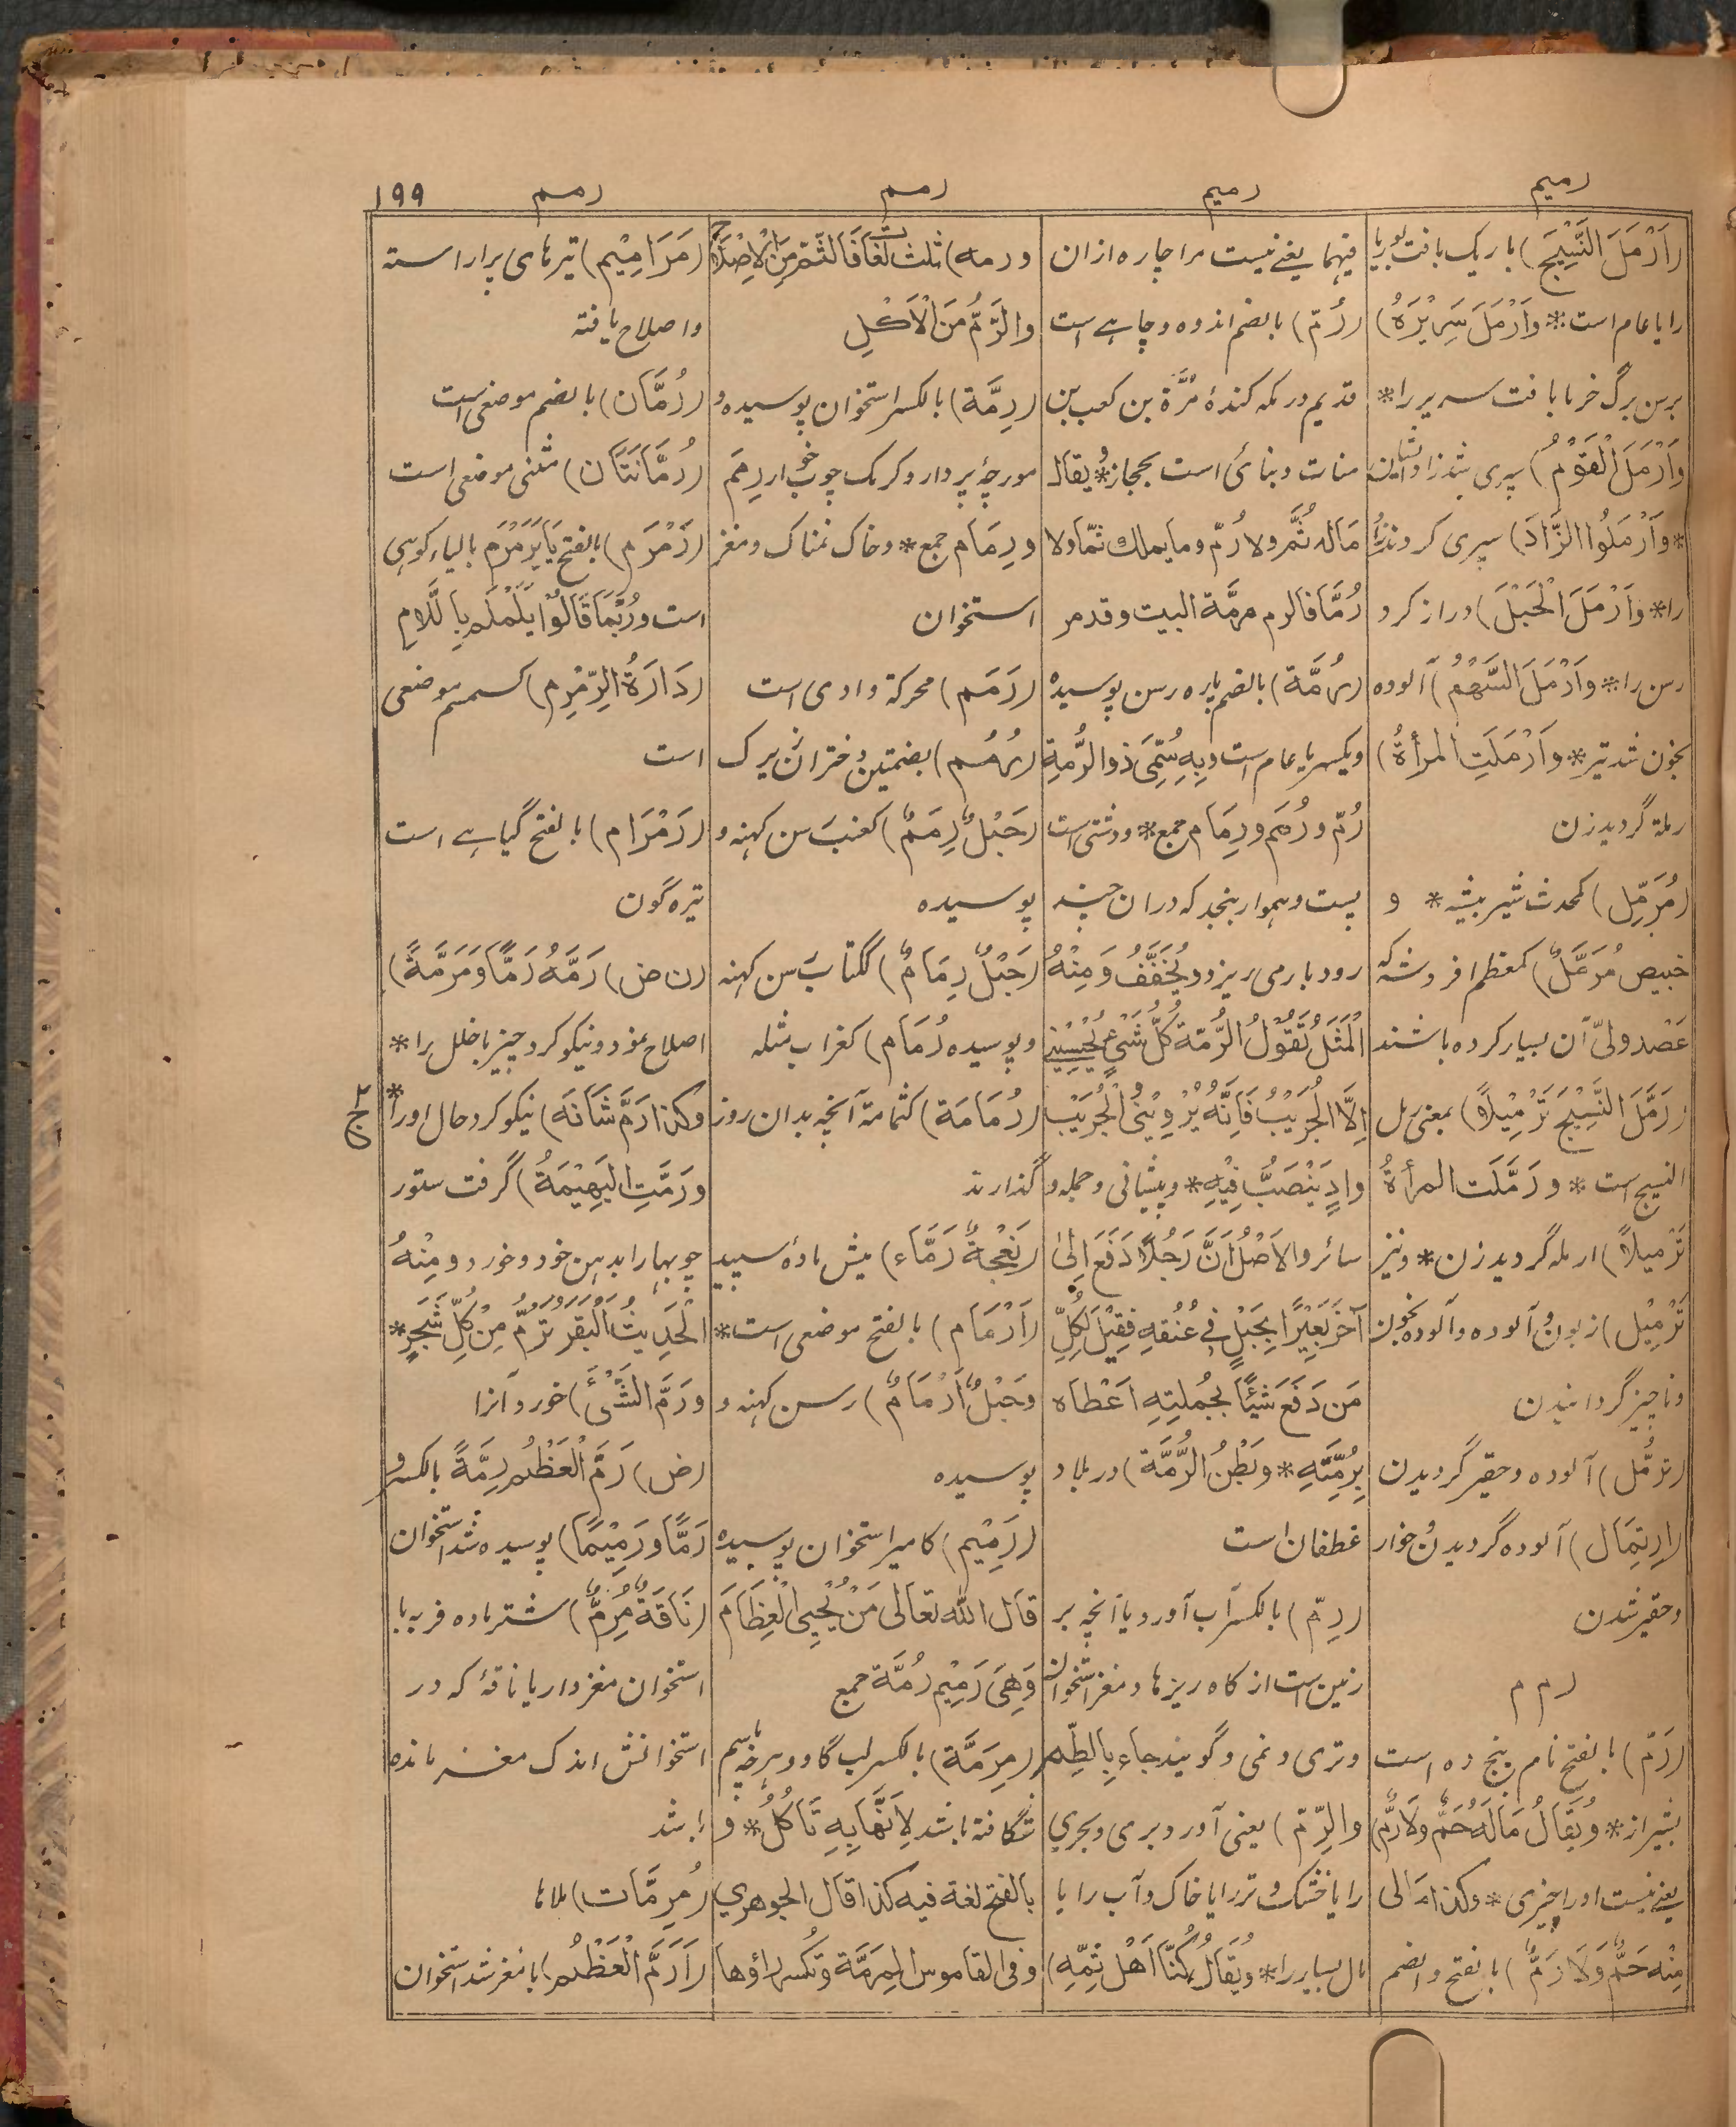 رمیم
رمیم
رمم
رمم
۱۹۹
(اَرْمَلَ النَّسِیْجَ) باریک بافت بوریا
را یا عام است * وَاَرْمَلَ سَرِیْرَهٗ)
برسن برگ خرما بافت سریر را *
وَاَرْمَلَ الْقَوْمُ) سپری شد زاد
* وَاَرْمَلُوا الزَّادَ) سپری کردند
را * وَاَرْمَلَ الْحَبْلَ) دراز کرد
رسن را * وَاَرْمَلَ السَّهْمُ) آلوده
بخون شد تیر * وَاَرْمَلَتِ المرأةُ)
رملة گردید زن
(مُرَمِّل) کمحدث شیر بیشه * و
خبیص مُرَمَّلٌ) کمعظم افروشه که
عَصْد ولیّ آن بسیار کرده باشند
(رَمَّلَ النَّسِیْجَ تَرْمِیْلاً) بمعنی رمل
النسیج است * و رَمَّلَت المرأةُ
تَرْمِیلاً) ارمله گردید زن * و نیز
تَرْمِیْل) زبون آلوده و آلوده بخون
و ناچیز گردانیدن
(ترمُّل) آلوده و حقیر گردیدن
(اِرتِمَال) آلوده گردیدن و خوار
و حقیر شدن
ر م م
(رَمّ) بالفتح نام پنج ده است
بشیراز * وَیُقَالُ مَالَهٗ حَمٌّ وَلَا رَمٌّ)
یعنے نیست او را چیزی * وکذا مَالی
مِنْه حَمٌّ وَلَا رَمٌّ) بالفتح و الضم
فیهما یعنے نیست مرا چاره از ان
(رُمّ) بالضم اندوه و چاهے است
قدیم در مکه کندهٔ مُرَّة بن کعب بن
منات و بنائ است بحجاز * یقال
مَاله ثُمَّ ولا رُمّ وما یملك ثمّا ولا
رُمَّا فالرم مرمَّة البیت وقد مر
(رُمَّة) بالضم پاره رسن پوسیده
ویکسر یا عام است وبِهٖ سُمِّیَ ذوالرُّمةِ
رُمّ و رُمَم و رِمَام جمع * و دشتی است
پست و هموار بنجد که دران چند
رود بار می ریزد و یُخَفَّفُ وَمِنْهُ
الْمَثَلُ تَقُوْلُ الرُّمّةُ کُلُّ شَیْءٍ یُحْسِیْنِیْ
اِلَّا الْجُرَیْبُ فَاِنَّهٗ یُرْوِیْنِیْ الْجُرَیْب
وادٍ یَنْصَبُّ فِیْهِ * و پیشانی و جمله و
سائر والاَصْلُ اَنَّ رَجُلاً دَفَعَ اِلیٰ
آخَرَ بَعِیْرًا بِحَبْلٍ فِیْ عُنُقِهٖ فَقِیْلَ لِکُلِّ
مَن دَفَعَ شَیْئًا بِجُملتِهٖ اَعْطَاه
بِرُمَّتِهٖ * وبَطْنُ الرُّمَّة) در بلاد
غطفان است
(رِمّ) بالکسر آب آورد یا آنچه بر
زمین است از کاه ریزها و مغز استخوان
و تری و نمی و گویند جاء بِالطِّمِ
والرِّمّ) یعنی آورد بری وبحری
را یا خشک و تر را یا خاک و آب را یا
مال بسیار را * ویُقَالُ کُنَّا اَهْلَ ثُمِّهٖ)
ورمه) ثلث لُغَاتٍ فَالثَّمّ مِنَ الْاِصْلَاحِ
والرَّمُّ مِنَ الْاَکْلِ
(رِمَّة) بالکسر استخوان پوسیده و
مورچهٔ پردار و کرمک چوب خوار رِمَم
ورِمَام جمع * و خاک نمناک و مغز
استخوان
(رَمَم) محرکة وادی است
(رُمُم) بضمتین دختران زیرک
(حَبْلٌ رِمَمٌ) کعنب رسن کهنه و
پوسیده
(حَبْلٌ رِمَامٌ) ککتاب رسن کهنه
و پوسیده رُمَام) کغراب مثله
(رُمَامَة) کثمامة آنچه بدان روز
گذارند
(نَعْجَةٌ رَمَّاء) میش مادهٔ سپید
(اَرْمَام) بالفتح موضعی است *
وحَبْلٌ اَرْمَامٌ) رسن کهنه و
پوسیده
(رَمِیْم) کامیر استخوان پوسیده
قال الله تعالی مَنْ یُّحْیِی الْعِظَامَ
وَهِیَ رَمِیْم رُمَّة جمع
(مِرَمَّة) بالکسر لب گاو و هرچه سم
شگافته باشد لِاَنَّهَا بِهٖ تَاکُلُ * و
بالفتح لغة فیه کذا قال الجوهری
وفی القاموس المِرَمَّة وتُکسر راؤها
(مَرَامِیْم) تیرهای پر آراسته
و اصلاح یافته
(رُمَّان) بالضم موضعی است
(رُمَّانَتَان) مثنی موضعی است
(رَمْرَم) بالفتح یا یَرَمْرَم بالیاء کوهی
است ورُبَّمَا قَالُوْا یَلَمْلَم بِاللَّامِ
(دَارَةُ الرِّمْرِم) کسمسم موضعی
است
(رَمْرَام) بالفتح گیاهے است
تیره گون
(ن ض) رَمَّهٗ رَمًّا وَمَرَمَّةً)
اصلاح نمود و نیکو کرد چیز با خلل را *
وکذا رَمَّ شَانَهٗ) نیکو کرد حال او را *
ورَمَّتِ الْبَهِیْمَةُ) گرفت ستور
چوبها را بدهن خود و خورد و مِنْهُ
الْحَدِیْثُ الْبَقَر تَرُمُّ مِنْ کُلِّ شَجَرٍ *
ورَمَّ الشَّیْءَ) خورد آنرا
(ض) رَمَّ الْعَظْمُ رِمَّةً بالکسر و
رَمًّا وَرَمِیْمًا) پوسیده شد استخوان
(نَاقَةٌ مُرِمٌّ) شتر ماده فربه با
استخوان مغزدار یا ناقهٔ که در
استخوانش اندک مغز مانده
باشد
(مُرِمَّات) بلاها
(اَرَمَّ الْعَظْمُ) با مغز شد استخوان
ج